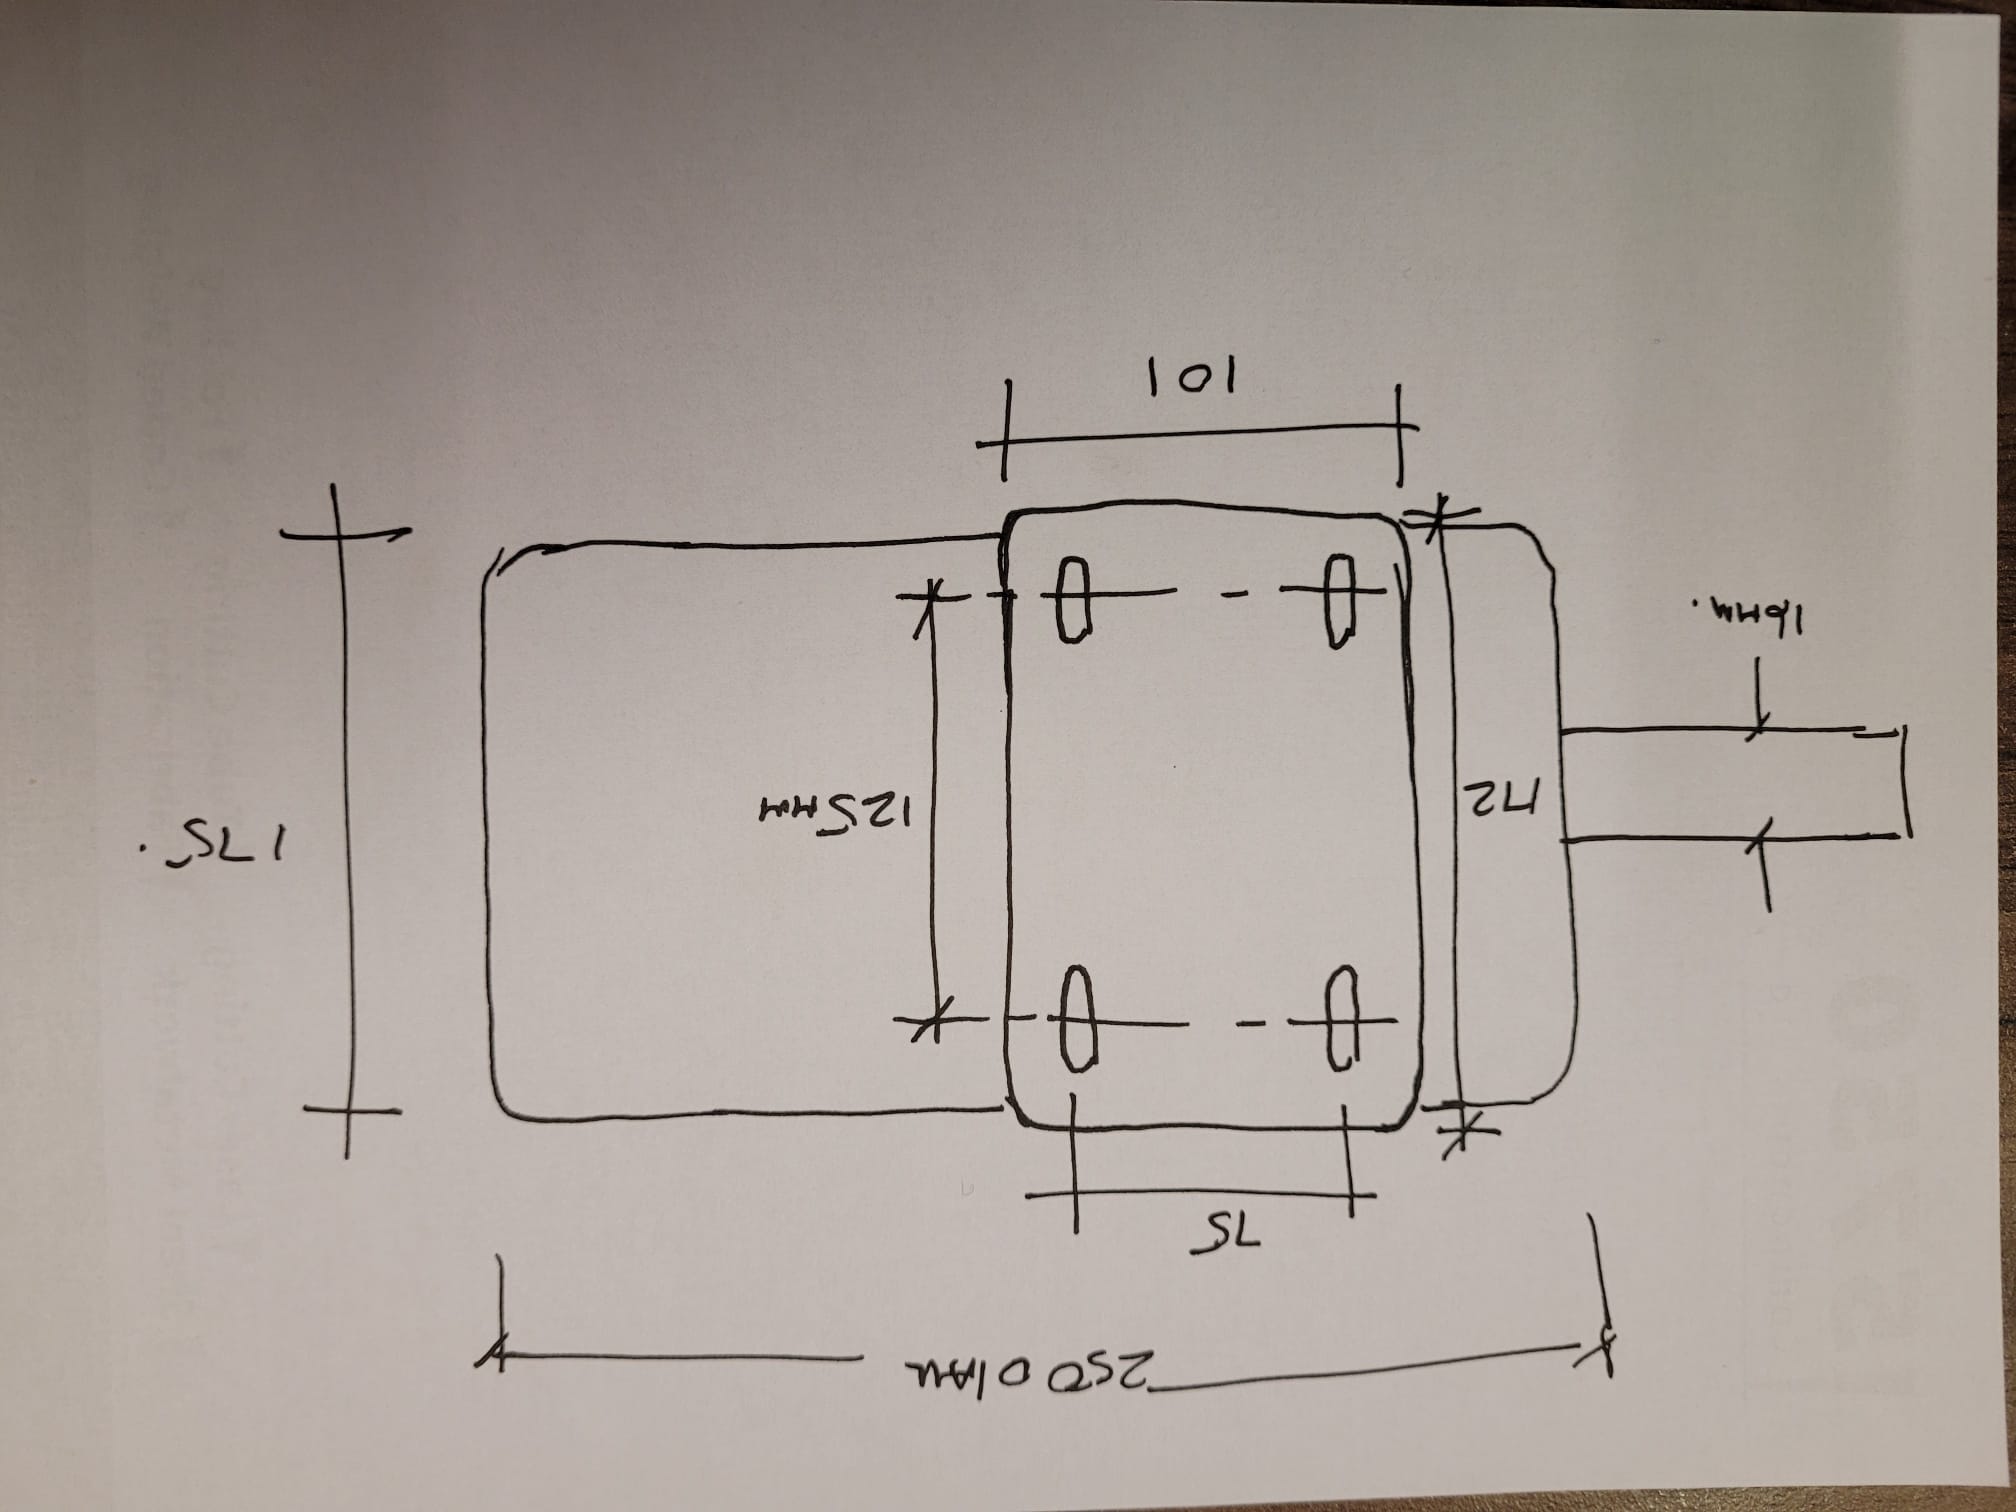 250 O/ALL
75
172
125MM
175.
16MM.
101